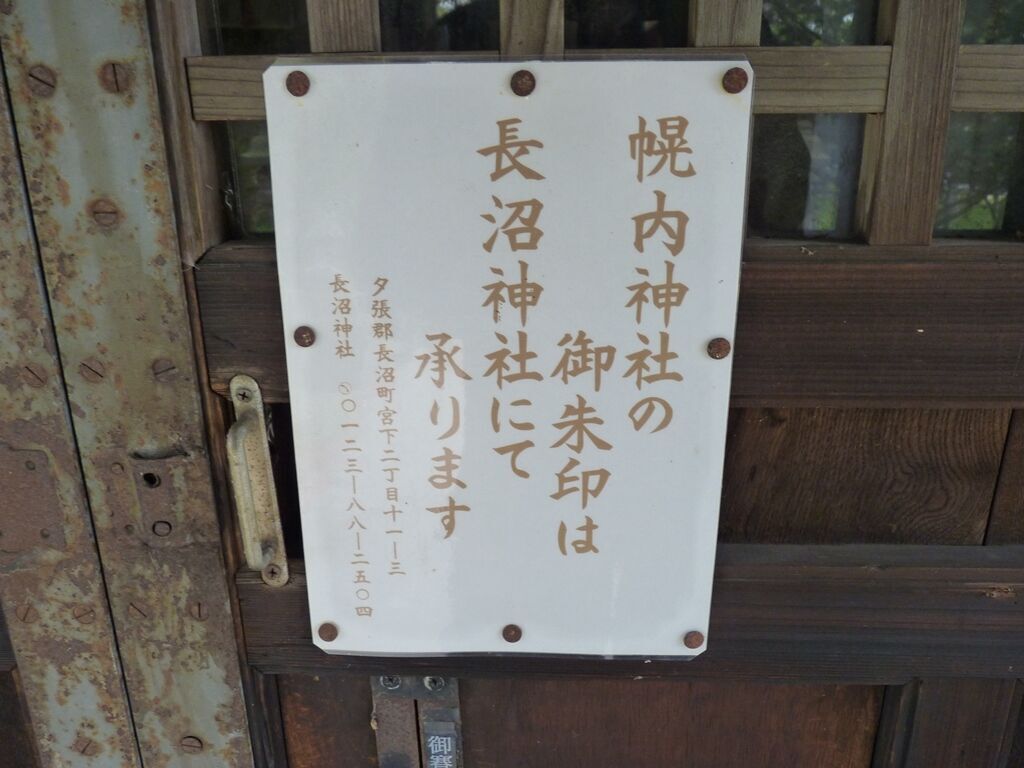 幌内神社の
御朱印は
長沼神社にて
承ります
夕張郡長沼町宮下二丁目十一―三
長沼神社 ☎〇一二三―八八―二五〇四
御賽